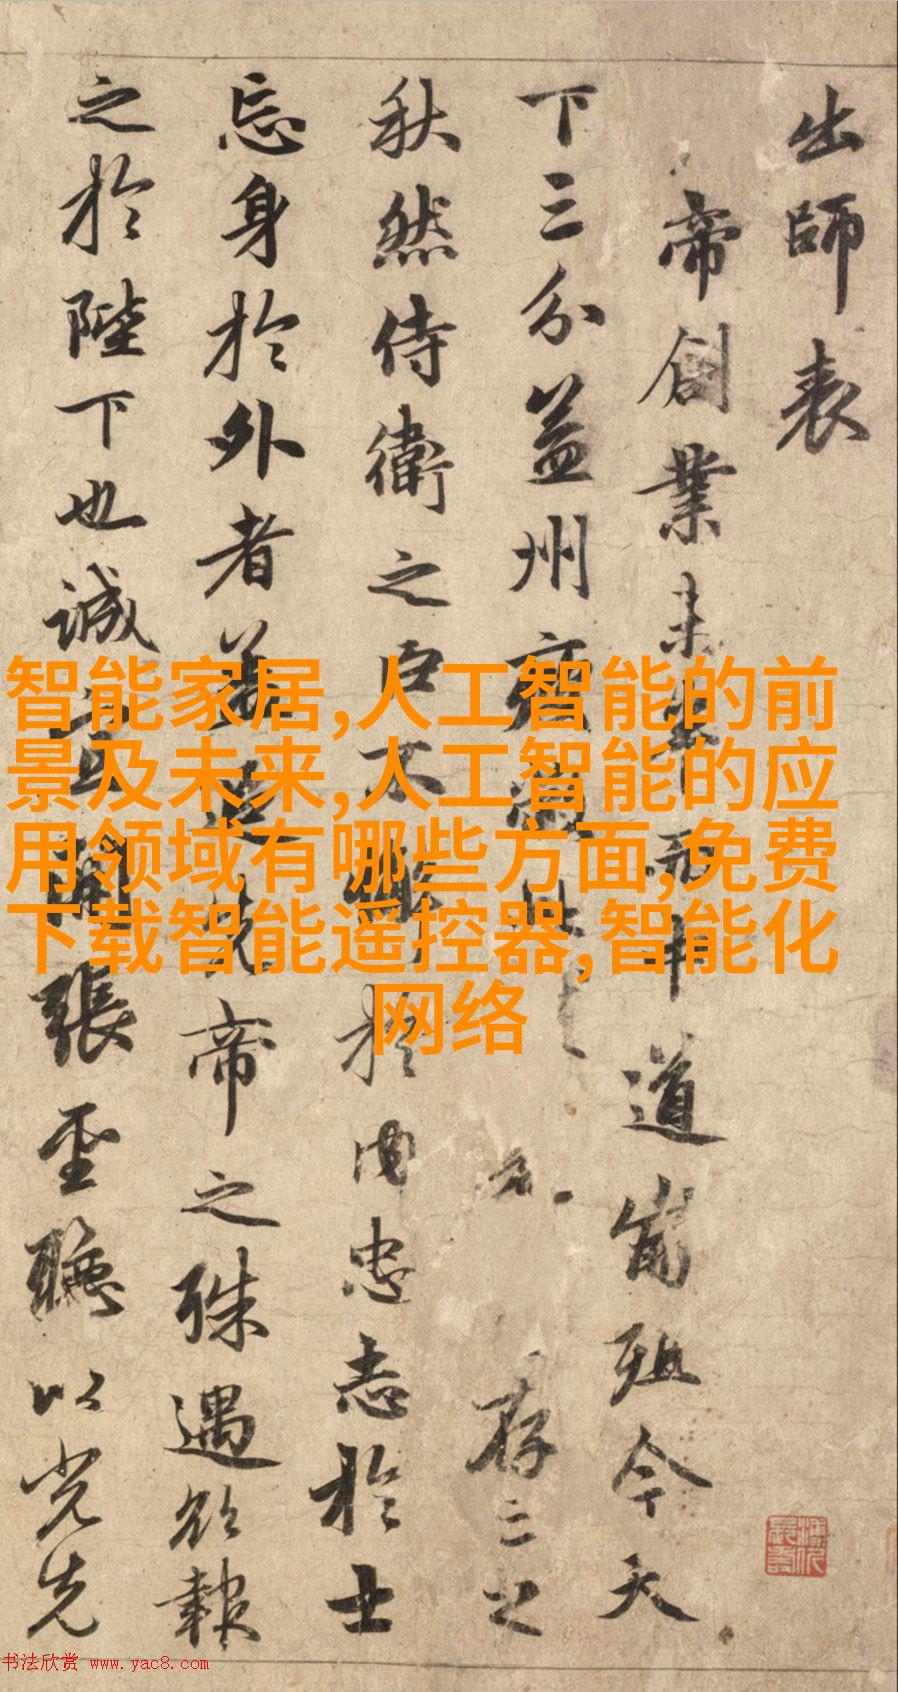 出師表
帝創業未半而中道崩殂今天
下三分益州疲弊存亡之
秋然侍衛之臣不懈於内忠志於士
忘身於外者蓋追先帝之殊遇欲報
之於陛下也誠宜開張聖聽以光先
智能家居,人工智能的前
景及未来,人工智能的应
用领域有哪些方面,免费
下载智能遥控器,智能化
网络
书法欣赏 www.yac8.com